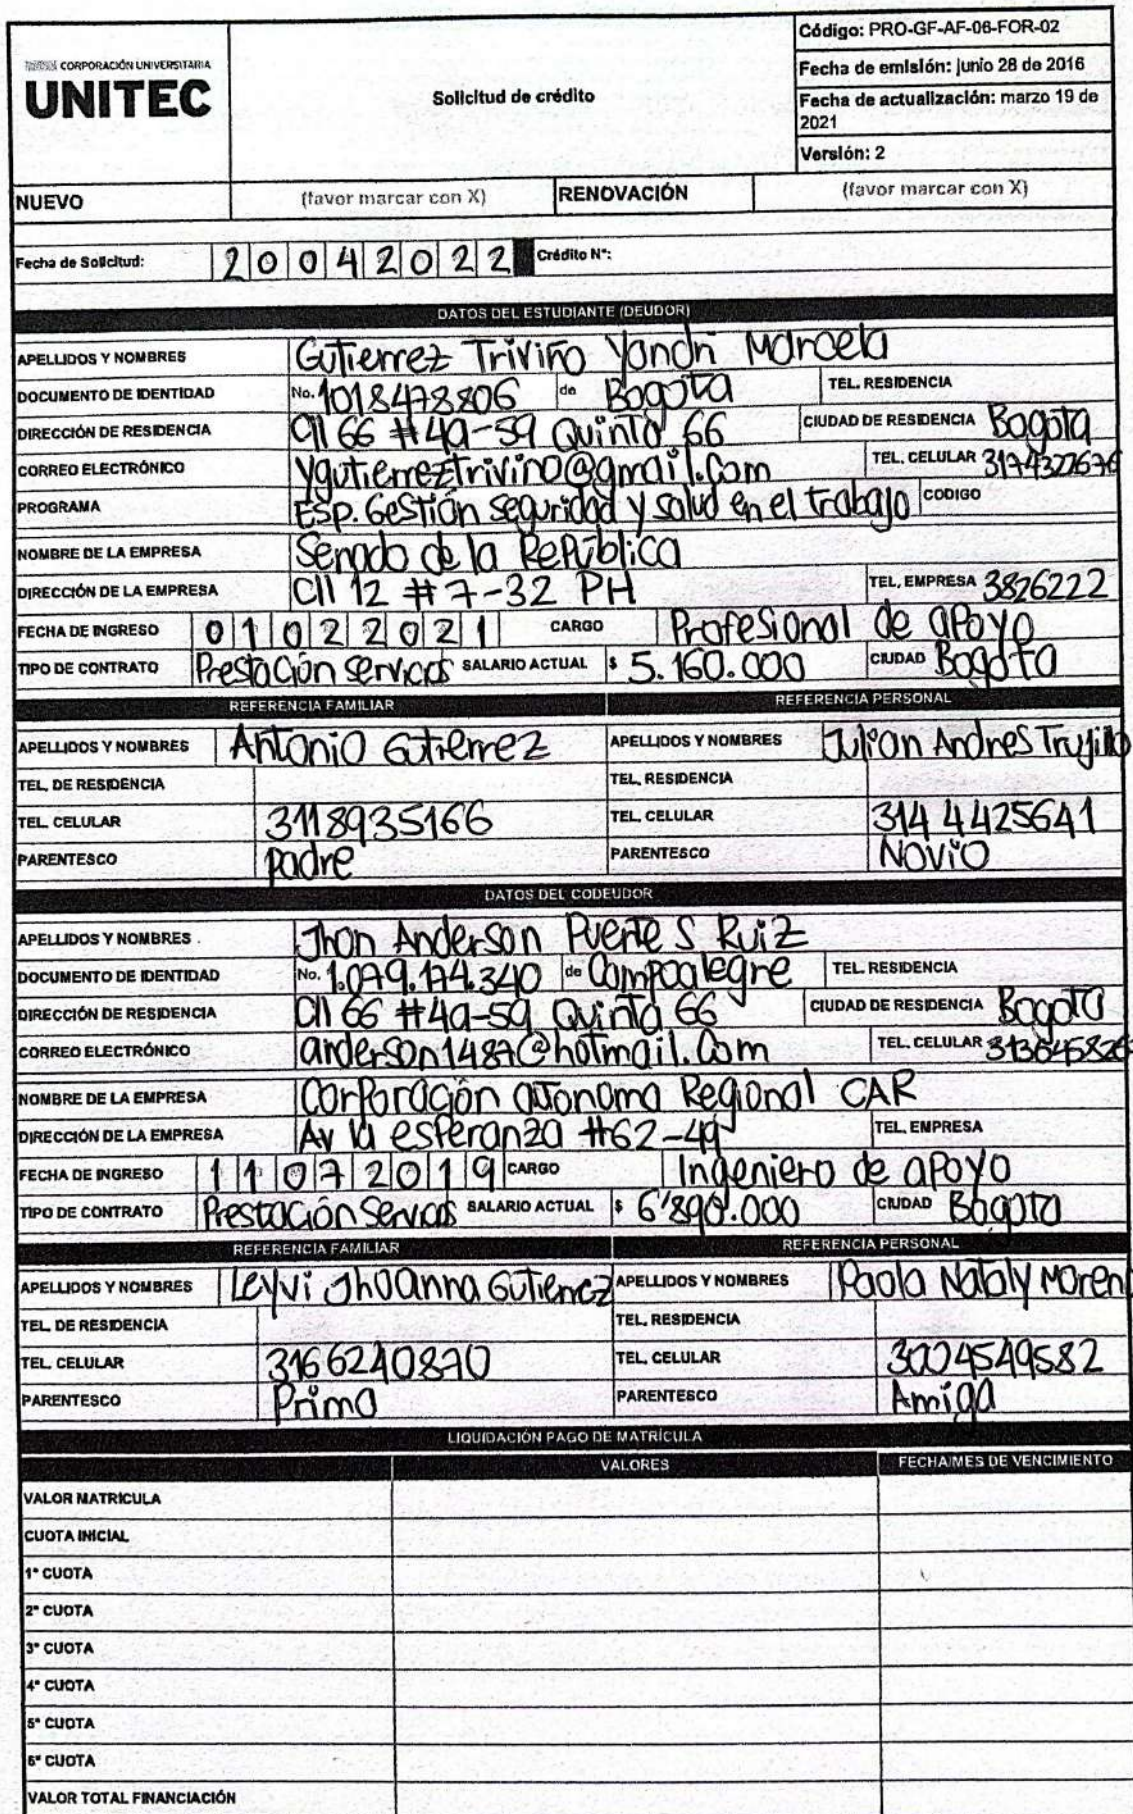 CORPORACIÓN UNIVERSITARIA
UNITEC
Solicitud de crédito
Código: PRO-GF-AF-06-FOR-02
Fecha de emisión: junio 28 de 2016
Fecha de actualización: marzo 19 de 2021
Versión: 2
NUEVO (favor marcar con X) RENOVACIÓN (favor marcar con X)
Fecha de Solicitud: 20042022 Crédito N°:
DATOS DEL ESTUDIANTE (DEUDOR)
APELLIDOS Y NOMBRES Gutierrez Triviño Yandri Marcela
DOCUMENTO DE IDENTIDAD No. 1018478806 de Bogota TEL. RESIDENCIA
DIRECCIÓN DE RESIDENCIA Cll 66 #4a-59 Quinta 66 CIUDAD DE RESIDENCIA Bogota
CORREO ELECTRÓNICO ygutierreztrivino@gmail.com TEL. CELULAR 3174327676
PROGRAMA Esp. Gestión seguridad y salud en el trabajo CODIGO
NOMBRE DE LA EMPRESA Senado de la República
DIRECCIÓN DE LA EMPRESA Cll 12 #7-32 PH TEL. EMPRESA 3826222
FECHA DE INGRESO 01022021 CARGO Profesional de apoyo
TIPO DE CONTRATO Prestación servicios SALARIO ACTUAL $ 5.160.000 CIUDAD Bogota
REFERENCIA FAMILIAR REFERENCIA PERSONAL
APELLIDOS Y NOMBRES Antonio Gutierrez APELLIDOS Y NOMBRES Julian Andres Trujillo
TEL. DE RESIDENCIA TEL. RESIDENCIA
TEL. CELULAR 3118935166 TEL. CELULAR 314 4425641
PARENTESCO padre PARENTESCO Novio
DATOS DEL CODEUDOR
APELLIDOS Y NOMBRES Jhon Anderson Puentes Ruiz
DOCUMENTO DE IDENTIDAD No. 1.079.174.340 de Campoalegre TEL. RESIDENCIA
DIRECCIÓN DE RESIDENCIA Cll 66 #4a-59 Quinta 66 CIUDAD DE RESIDENCIA Bogota
CORREO ELECTRÓNICO anderson1487@hotmail.com TEL. CELULAR
NOMBRE DE LA EMPRESA Corporación autonoma Regional CAR
DIRECCIÓN DE LA EMPRESA Av la esperanza #62-49 TEL. EMPRESA
FECHA DE INGRESO 11072019 CARGO Ingeniero de apoyo
TIPO DE CONTRATO Prestación Servicios SALARIO ACTUAL $ 6'890.000 CIUDAD Bogota
REFERENCIA FAMILIAR REFERENCIA PERSONAL
APELLIDOS Y NOMBRES Leyvi Jhoanna Gutierrez APELLIDOS Y NOMBRES Paola Nataly Moreno
TEL. DE RESIDENCIA TEL. RESIDENCIA
TEL. CELULAR 3166240870 TEL. CELULAR 3004549582
PARENTESCO Prima PARENTESCO Amiga
LIQUIDACIÓN PAGO DE MATRÍCULA
VALORES FECHA/MES DE VENCIMIENTO
VALOR MATRICULA
CUOTA INICIAL
1° CUOTA
2° CUOTA
3° CUOTA
4° CUOTA
5° CUOTA
6° CUOTA
VALOR TOTAL FINANCIACIÓN